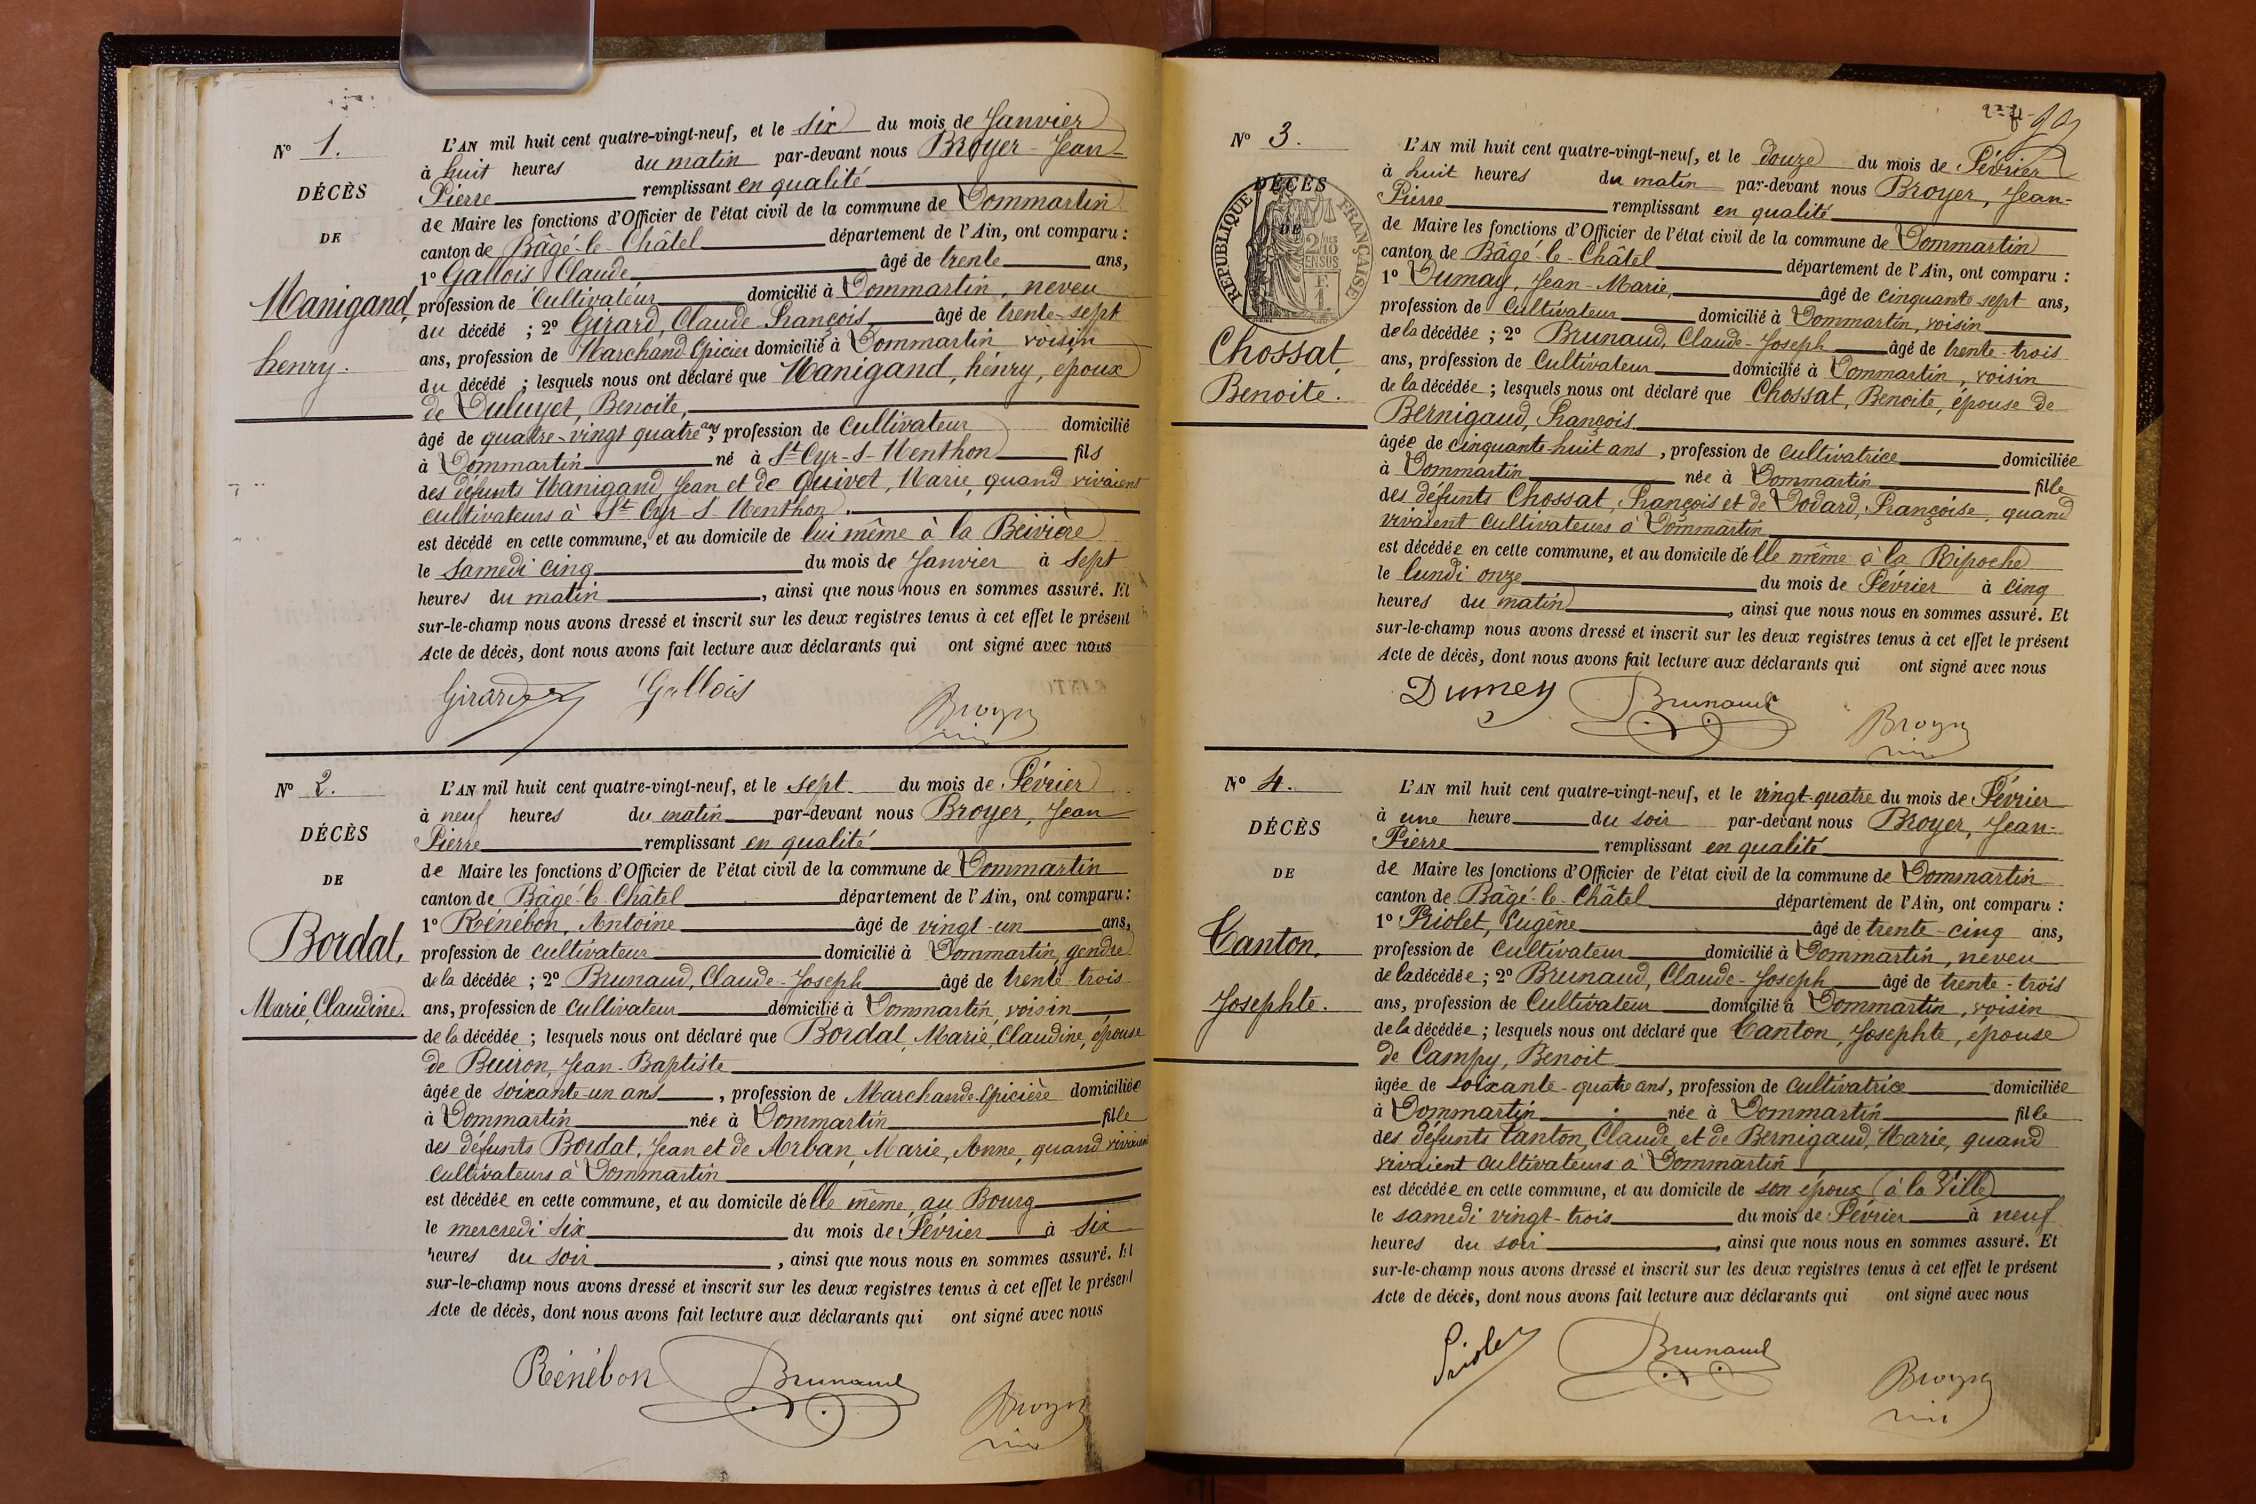 N° 1.
DÉCÈS
DE
Manigand,
henry.
L'AN mil huit cent quatre-vingt-neuf, et le six du mois de Janvier
à huit heures du matin par-devant nous Broyer - Jean-
Pierre remplissant en qualité
de Maire les fonctions d'Officier de l'état civil de la commune de Dommartin
canton de Bâgé-le-Châtel département de l'Ain, ont comparu :
1° Gallois Claude âgé de trente ans,
profession de Cultivateur domicilié à Dommartin, neveu
du décédé ; 2° Girard, Claude François, âgé de trente-sept
ans, profession de Marchand Epicier domicilié à Dommartin voisin
du décédé ; lesquels nous ont déclaré que Manigand, hénry, époux
de Duluyet, Benoite,
âgé de quatre-vingt quatre ans, profession de Cultivateur domicilié
à Dommartin né à St Cyr-s-Menthon fils
des défunts Manigand Jean et de Guivet, Marie, quand vivaient
cultivateurs à St Cyr s Menthon.
est décédé en cette commune, et au domicile de lui même à la Beivière
le samedi cinq du mois de Janvier à sept
heures du matin, ainsi que nous nous en sommes assuré. Et
sur-le-champ nous avons dressé et inscrit sur les deux registres tenus à cet effet le présent
Acte de décès, dont nous avons fait lecture aux déclarants qui ont signé avec nous
Girard Gallois
Broyer
N° 2.
DÉCÈS
DE
Bordat,
Marie, Claudine.
L'AN mil huit cent quatre-vingt-neuf, et le sept du mois de Février
à neuf heures du matin par-devant nous Broyer, Jean
Pierre remplissant en qualité
de Maire les fonctions d'Officier de l'état civil de la commune de Dommartin
canton de Bâgé-le-Châtel département de l'Ain, ont comparu :
1° Rénébon, Antoine âgé de vingt-un ans,
profession de cultivateur domicilié à Dommartin, gendre
de la décédée ; 2° Brunaud, Claude-Joseph âgé de trente-trois
ans, profession de Cultivateur domicilié à Dommartin, voisin
de la décédée ; lesquels nous ont déclaré que Bordat, Marie, Claudine, épouse
de Buiron, Jean-Baptiste
âgée de soixante-un ans, profession de Marchande-Epicière domiciliée
à Dommartin née à Dommartin fille
des défunts Bordat, Jean et de Arban, Marie, Anne, quand vivaient
cultivateurs à Dommartin
est décédée en cette commune, et au domicile d'elle même, au Bourg
le mercredi six du mois de Février à six
heures du soir, ainsi que nous nous en sommes assuré. Et
sur-le-champ nous avons dressé et inscrit sur les deux registres tenus à cet effet le présent
Acte de décès, dont nous avons fait lecture aux déclarants qui ont signé avec nous
Rénébon Brunaud
Broyer
N° 3.
DÉCÈS
DE
RÉPUBLIQUE FRANÇAISE
Chossat,
Benoite.
L'AN mil huit cent quatre-vingt-neuf, et le douze du mois de Février
à huit heures du matin par-devant nous Broyer, Jean-
Pierre remplissant en qualité
de Maire les fonctions d'Officier de l'état civil de la commune de Dommartin
canton de Bâgé-le-Châtel département de l'Ain, ont comparu :
1° Dumay, Jean-Marie, âgé de cinquante-sept ans,
profession de Cultivateur domicilié à Dommartin, voisin
de la décédée ; 2° Brunaud, Claude-Joseph âgé de trente-trois
ans, profession de Cultivateur domicilié à Dommartin, voisin
de la décédée ; lesquels nous ont déclaré que Chossat, Benoite, épouse de
Bernigaud, François
âgée de cinquante-huit ans, profession de cultivatrice domiciliée
à Dommartin née à Dommartin fille
des défunts Chossat, François et de Dodard, Françoise, quand
vivaient cultivateurs à Dommartin
est décédée en cette commune, et au domicile d'elle même à la Ripoche
le lundi onze du mois de Février à cinq
heures du matin, ainsi que nous nous en sommes assuré. Et
sur-le-champ nous avons dressé et inscrit sur les deux registres tenus à cet effet le présent
Acte de décès, dont nous avons fait lecture aux déclarants qui ont signé avec nous
Dumey Brunaud
Broyer
N° 4.
DÉCÈS
DE
Tanton,
Josephte.
L'AN mil huit cent quatre-vingt-neuf, et le vingt-quatre du mois de Février
à une heure du soir par-devant nous Broyer, Jean-
Pierre remplissant en qualité
de Maire les fonctions d'Officier de l'état civil de la commune de Dommartin
canton de Bâgé-le-Châtel département de l'Ain, ont comparu :
1° Priolet, Eugène âgé de trente-cinq ans,
profession de Cultivateur domicilié à Dommartin, neveu
de la décédée ; 2° Brunaud, Claude-Joseph âgé de trente-trois
ans, profession de Cultivateur domicilié à Dommartin, voisin
de la décédée ; lesquels nous ont déclaré que Tanton, Josephte, épouse
de Campy, Benoit
âgée de soixante-quatre ans, profession de cultivatrice domiciliée
à Dommartin née à Dommartin fille
des défunts Tanton, Claude et de Bernigaud, Marie, quand
vivaient cultivateurs à Dommartin
est décédée en cette commune, et au domicile de son époux (à la Ville)
le samedi vingt-trois du mois de Février à neuf
heures du soir, ainsi que nous nous en sommes assuré. Et
sur-le-champ nous avons dressé et inscrit sur les deux registres tenus à cet effet le présent
Acte de décès, dont nous avons fait lecture aux déclarants qui ont signé avec nous
Priolet Brunaud
Broyer